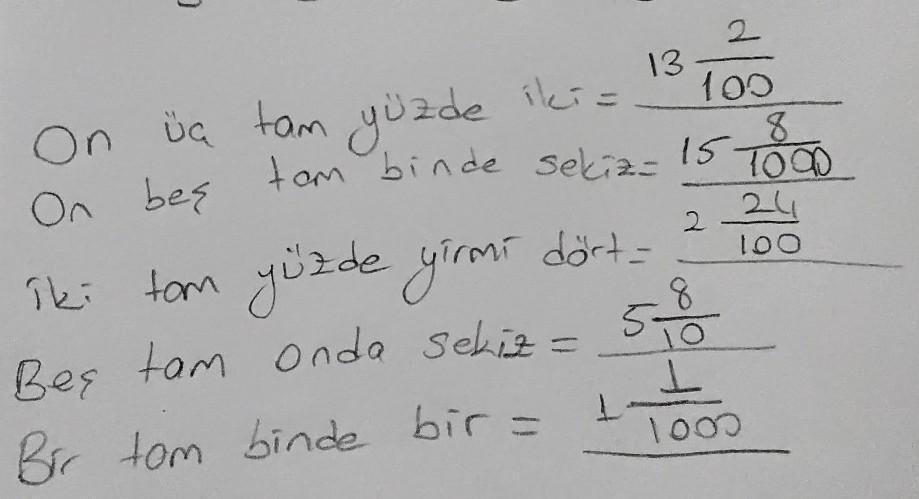 On üç tam yüzde iki = 13 2/100
On beş tam binde sekiz = 15 8/1000
İki tam yüzde yirmi dört = 2 24/100
Beş tam onda sekiz = 5 8/10
Bir tam binde bir = 1 1/1000